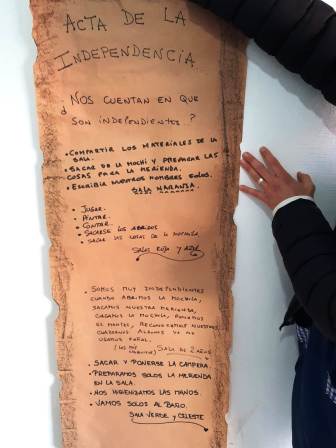 ACTA DE LA
INDEPENDENCIA
¿NOS CUENTAN EN QUE
SON INDEPENDIENTES?
• COMPARTIR LOS MATERIALES DE LA
SALA.
• SACAR DE LA MOCHI Y PREPARAR LAS
COSAS PARA LA MERIENDA.
• ESCRIBIR NUESTROS NOMBRES SOLOS.
SALA NARANJA.
• JUGAR.
• PINTAR.
• CONTAR.
• SACARSE LOS ABRIGOS
• SACAR LAS COSAS DE LA MOCHILA.
SALAS ROJA Y AZUL
• SOMOS MUY INDEPENDIENTES
CUANDO ABRIMOS LA MOCHILA,
SACAMOS NUESTRA MERIENDA,
CUELGAMOS LA MOCHILA, PONEMOS
EL MANTEL, RECONOCEMOS NUESTROS
CUADERNOS. ALGUNOS YA NO
USAMOS PAÑAL.
SALA DE 2 AÑOS
• SACAR Y PONERSE LA CAMPERA.
• PREPARAMOS SOLOS LA MERIENDA
EN LA SALA.
• NOS HIGIENIZAMOS LAS MANOS.
• VAMOS SOLOS AL BAÑO.
SALA VERDE Y CELESTE